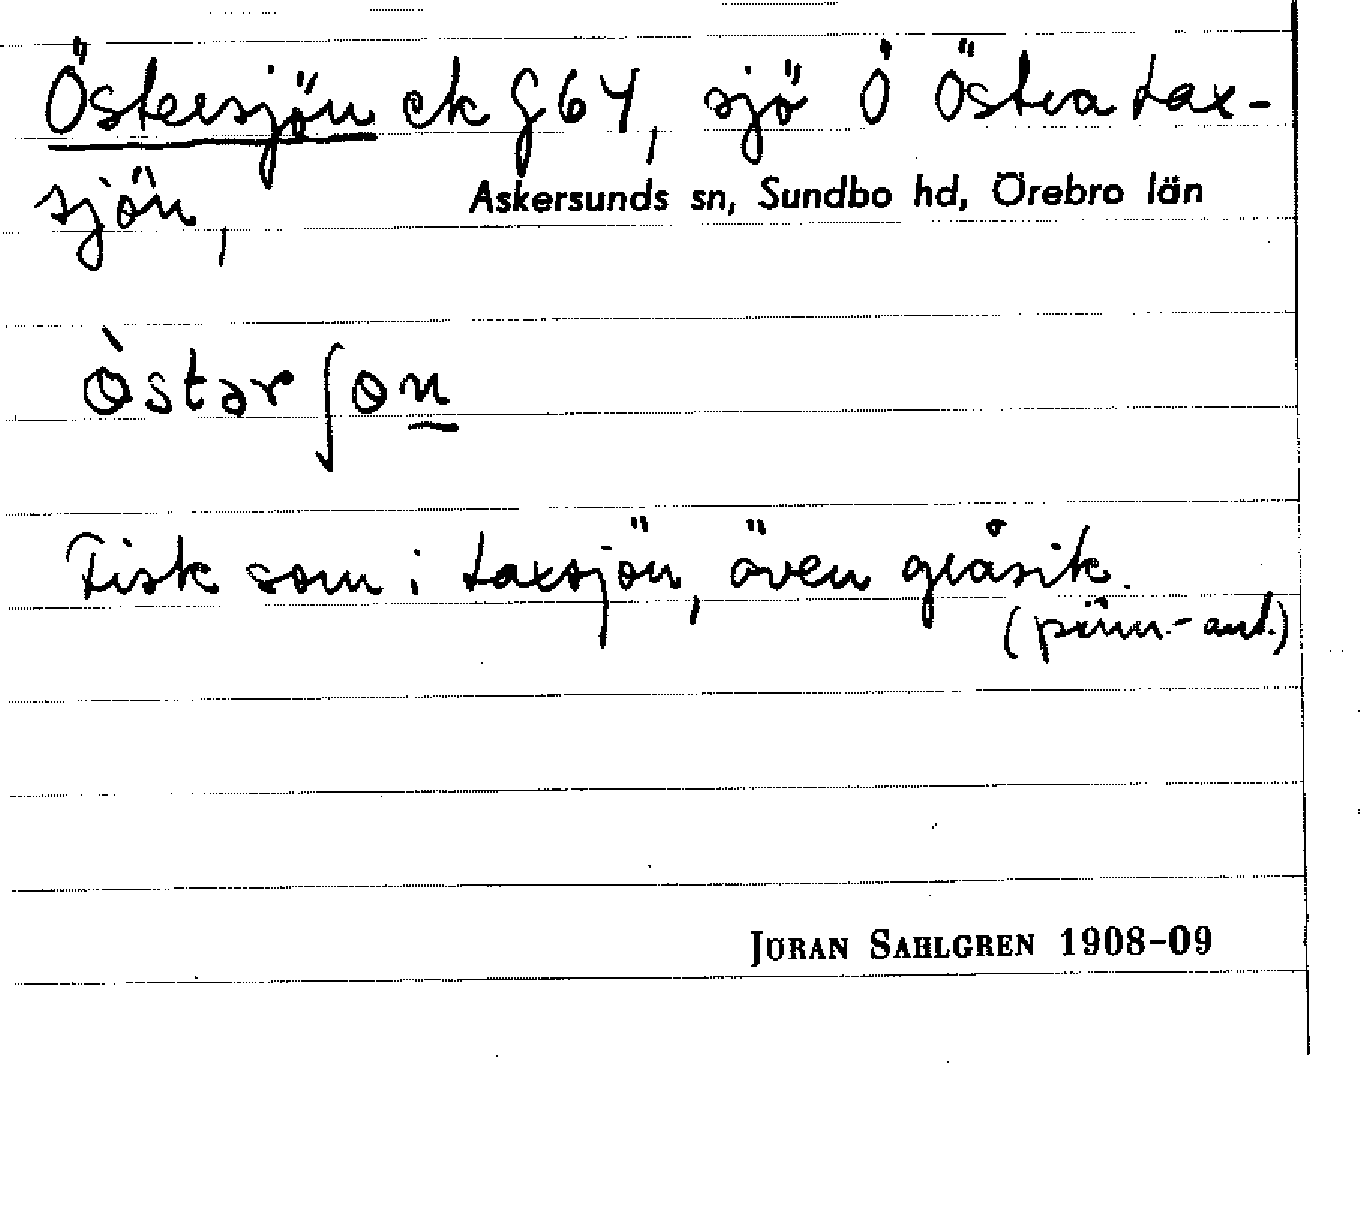 Östersjön ek G 64, sjö Ö Östra Lax-
sjön,
Askersunds sn, Sundbo hd, Örebro län
ɵ̀stər ʃɵn
Fisk som i Laxsjön, även gråsik.
JÖRAN SAHLGREN 1908-09